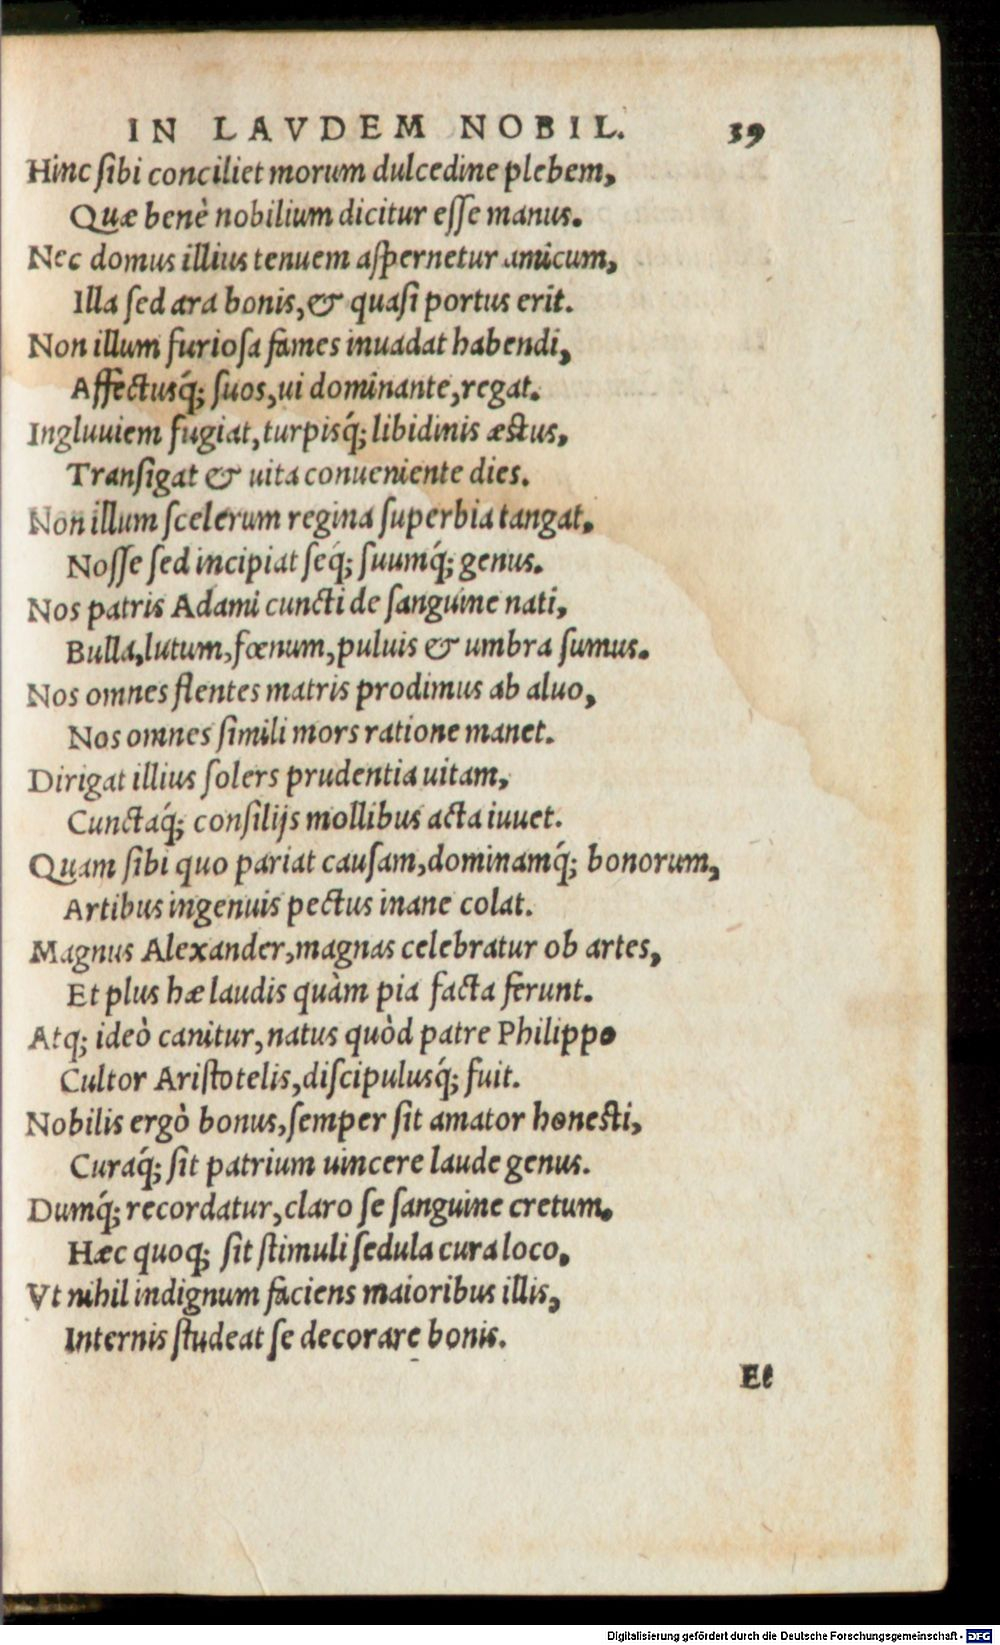 IN LAVDEM NOBIL. 39
Hinc ſibi conciliet morum dulcedine plebem,
Quæ benè nobilium dicitur eſſe manus.
Nec domus illius tenuem aſpernetur amicum,
Illa ſed ara bonis, & quaſi portus erit.
Non illum furioſa fames inuadat habendi,
Affectusq́; ſuos, ui dominante, regat.
Ingluuiem fugiat, turpisq́; libidinis æstus,
Tranſigat & uita conueniente dies.
Non illum ſcelerum regina ſuperbia tangat,
Noſſe ſed incipiat ſeq́; ſuumq́; genus.
Nos patris Adami cuncti de ſanguine nati,
Bulla, lutum, fœnum, puluis & umbra ſumus.
Nos omnes flentes matris prodimus ab aluo,
Nos omnes ſimili mors ratione manet.
Dirigat illius ſolers prudentia uitam,
Cunctaq́; conſilijs mollibus acta iuuet.
Quam ſibi quo pariat cauſam, dominamq́; bonorum,
Artibus ingenuis pectus inane colat.
Magnus Alexander, magnas celebratur ob artes,
Et plus hæ laudis quàm pia facta ferunt.
Atq; ideò canitur, natus quòd patre Philippo
Cultor Ariſtotelis, diſcipulusq́; fuit.
Nobilis ergò bonus, ſemper ſit amator honesti,
Curaq́; ſit patrium uincere laude genus.
Dumq́; recordatur, claro ſe ſanguine cretum,
Hæc quoq; ſit ſtimuli ſedula cura loco,
Vt nihil indignum faciens maioribus illis,
Internis ſtudeat ſe decorare bonis.
Et
Digitalisierung gefördert durch die Deutsche Forschungsgemeinschaft - DFG